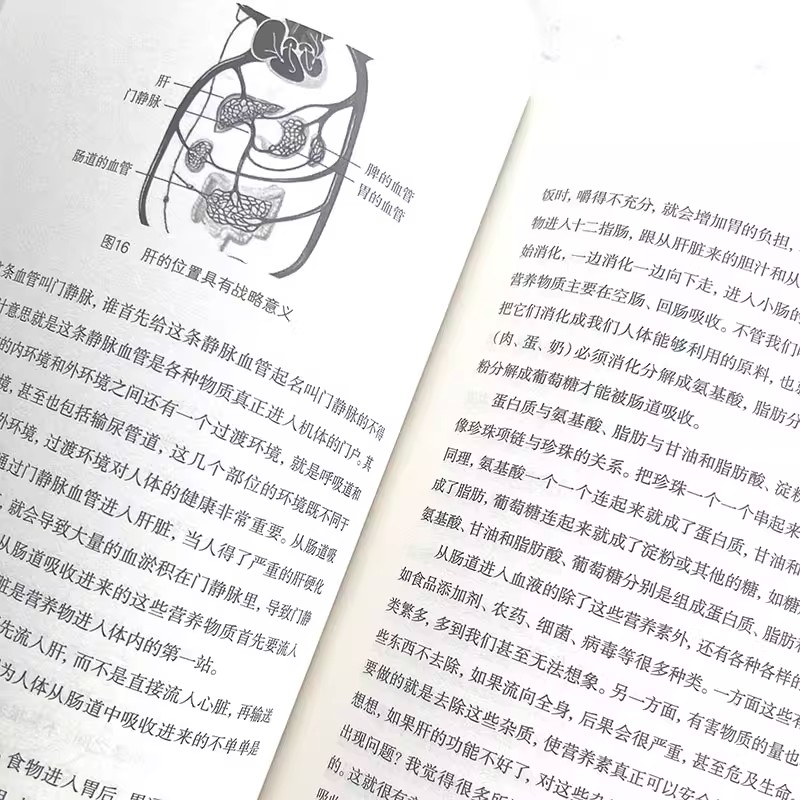 肝
门静脉
肠道的血管
脾的血管
胃的血管
图16 肝的位置具有战略意义
这条血管叫门静脉，谁首先给这条静脉血管起名叫门静脉的不得
计意思就是这条静脉血管是各种物质真正进入机体的门户。其
的内环境和外环境之间还有一个过渡环境，就是呼吸道和
境，甚至也包括输尿管道，这几个部位的环境既不同于
外环境，过渡环境对人体的健康非常重要。从肠道吸
通过门静脉血管进入肝脏，当人得了严重的肝硬化
，就会导致大量的血淤积在门静脉里，导致门静
从肠道吸收进来的这些营养物质首先要流入
脏是营养物进入体内的第一站。
先流入肝，而不是直接流入心脏，再输送
为人体从肠道中吸收进来的不单单是
食物进入胃后，胃
饭时，嚼得不充分，就会增加胃的负担，
物进入十二指肠，跟从肝脏来的胆汁和从
始消化，一边消化一边向下走，进入小肠的
营养物质主要在空肠、回肠吸收。不管我们
把它们消化成我们人体能够利用的原料，也
（肉、蛋、奶）必须消化分解成氨基酸，脂肪分
粉分解成葡萄糖才能被肠道吸收。
蛋白质与氨基酸、脂肪与甘油和脂肪酸、淀粉
像珍珠项链与珍珠的关系。把珍珠一个一个串起来
同理，氨基酸一个一个连起来就成了蛋白质，甘油和
成了脂肪，葡萄糖连起来就成了淀粉或其他的糖，如糖
氨基酸、甘油和脂肪酸、葡萄糖分别是组成蛋白质、脂肪和
从肠道进入血液的除了这些营养素外，还有各种各样的
如食品添加剂、农药、细菌、病毒等很多种类。一方面这些
类繁多，多到我们甚至无法想象。另一方面，有害物质的量也
些东西不去除，如果流向全身，后果会很严重，甚至危及生命
要做的就是去除这些杂质，使营养素真正可以安全
想想，如果肝的功能不好了，对这些杂
出现问题？我觉得很多所
的。这就很有
吸收